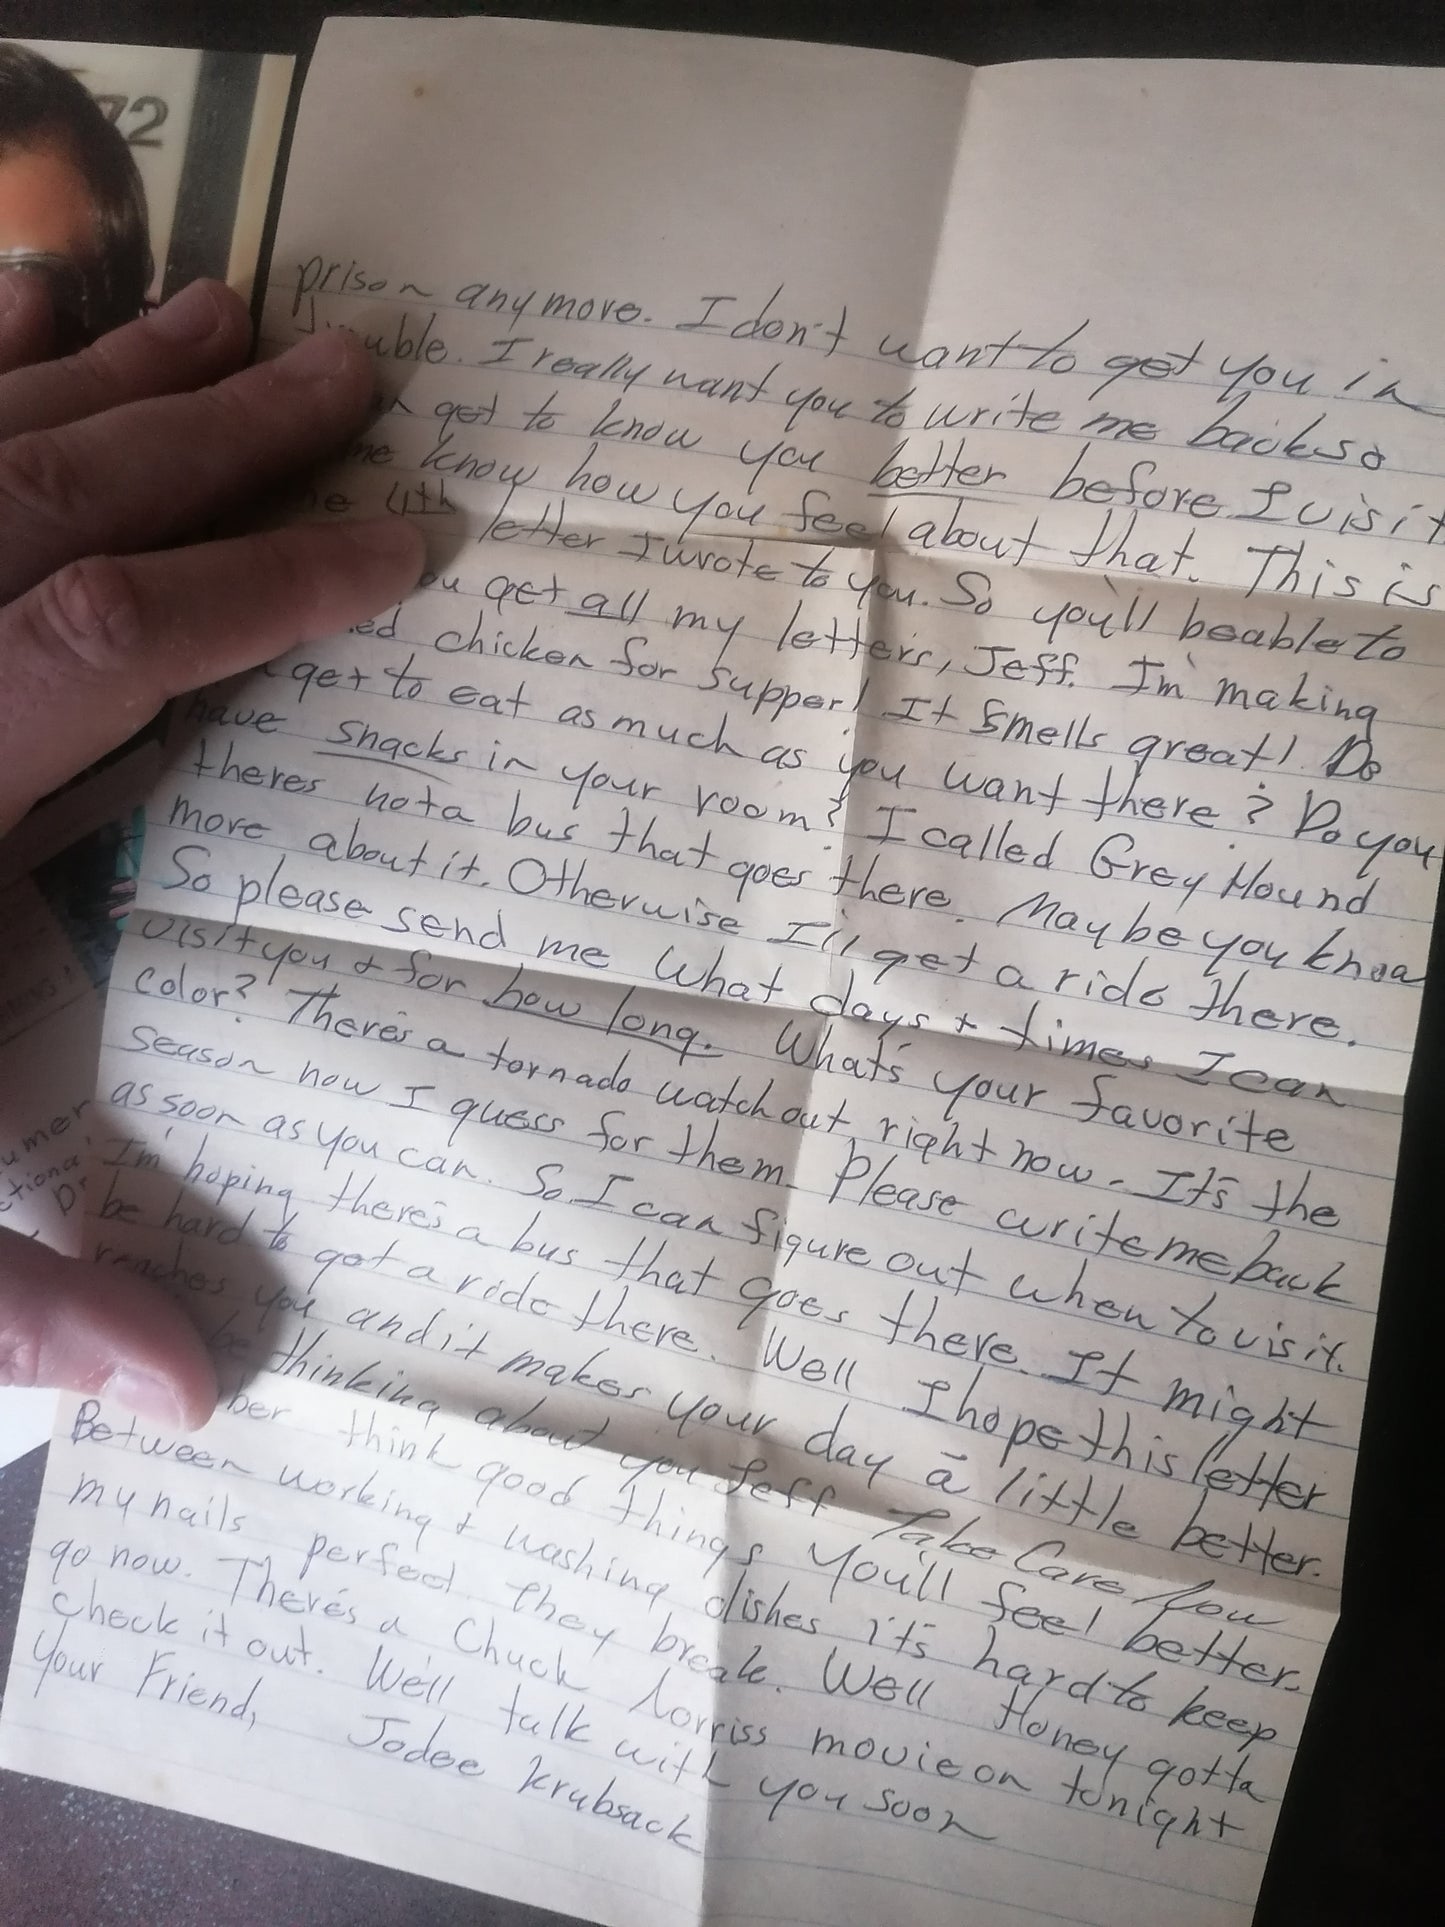 72
prison anymore. I don't want to get you in
uble. I really want you to write me back so
get to know you better before I visit
me know how you feel about that. This is
he 4th letter I wrote to you. So you'll beable to
ou get all my letters, Jeff. I'm making
ed chicken for supper! It smells great! Do
get to eat as much as you want there? Do you
have snacks in your room? I called Grey Hound
theres not a bus that goes there. Maybe you know
more about it. Otherwise I'll get a ride there.
So please send me what days + times I can
visit you + for how long. What's your favorite
color? There's a tornado watch out right now. It's the
season now I guess for them. Please write me back
as soon as you can. So I can figure out when to visit.
I'm hoping there's a bus that goes there. It might
be hard to get a ride there. Well I hope this letter
reaches you and it makes your day a little better.
be thinking about you Jeff Take Care Now
ber think good things you'll feel better.
Between working + washing dishes it's hard to keep
my nails perfect. They break. Well Honey gotta
go now. There's a Chuck Norriss movie on tonight
check it out. We'll talk with you soon
Your Friend, Jodee Krubsack